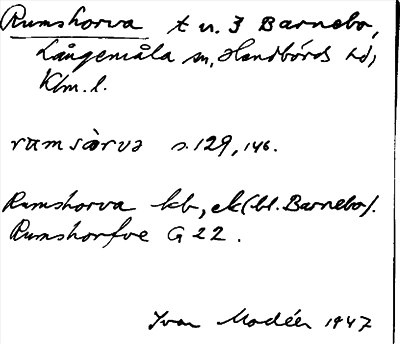 Rumshorva t u. 3 Barnebo,
Långemåla sn, Handbörds hd,
Klm. l.
rumsàrva s. 129, 146.
Rumshorva kb, ek (bl. Barnebo).
Rumshorfve G 22.
Ivar Modéer 1947